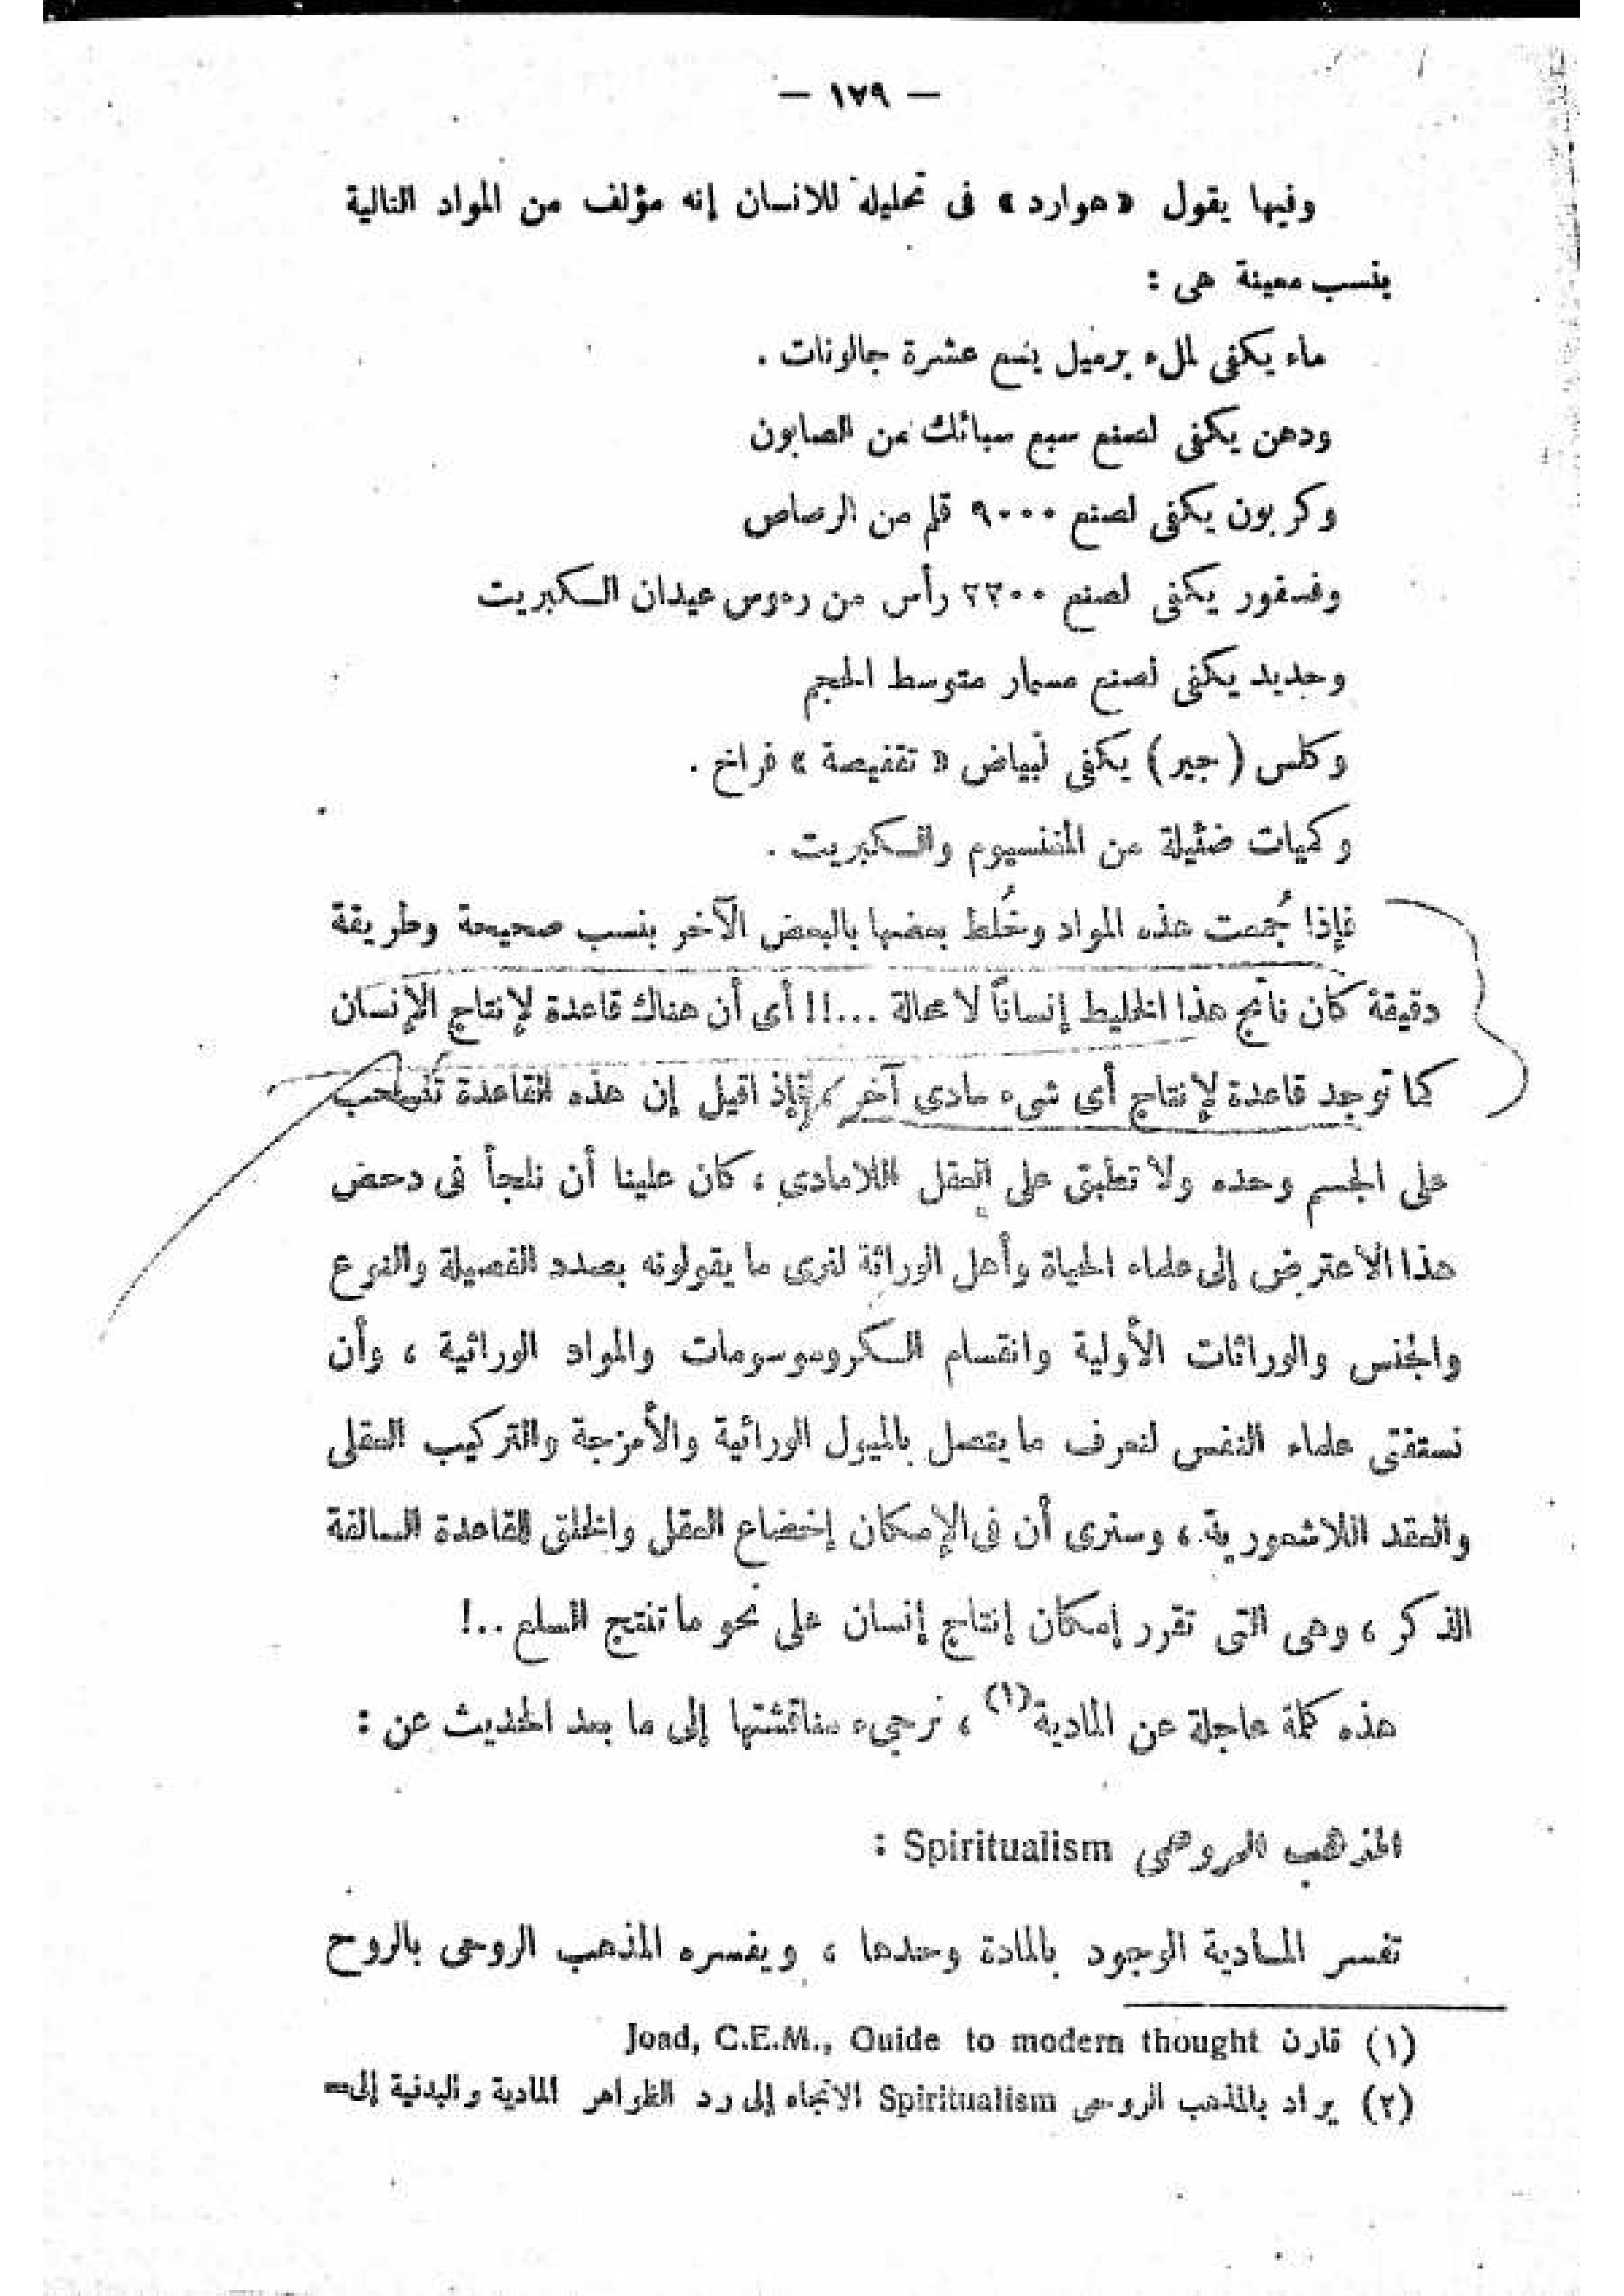 — ١٧٩ —
وفيها يقول «هوارد» فى تحليله للانسان إنه مؤلف من المواد التالية
بنسب معينة هى :
ماء يكفى لملء برميل يسع عشرة جالونات .
ودهن يكفى لصنع سبع سبائك من الصابون
وكربون يكفى لصنع ٩٠٠٠ قلم من الرصاص
وفسفور يكفى لصنع ٢٢٠٠ رأس من رءوس عيدان الكبريت
وحديد يكفى لصنع مسمار متوسط الحجم
وكلس (جير) يكفى لبياض « تقفيصة » فراخ .
وكميات ضئيلة من المغنسيوم والكبريت .
فإذا جُمعت هذه المواد وخُلط بعضها بالبعض الآخر بنسب صحيحة وطريقة
دقيقة كان ناتج هذا الخليط إنساناً لا محالة ...!! أى أن هناك قاعدة لإنتاج الإنسان
كما توجد قاعدة لإنتاج أى شىء مادى آخر ، فإذ اقيل إن هذه القاعدة تنسحب
على الجسم وحده ولا تطبق على العقل اللامادى ، كان علينا أن نلجأ فى دحض
هذا الاعترض إلى علماء الحياة وأهل الوراثة لنرى ما يقولونه بصدد الفصيلة والنوع
والجنس والوراثات الأولية وانقسام الكروموسومات والمواد الوراثية ، وأن
نستفتى علماء النفس لنعرف ما يتصل بالميول الوراثية والأمزجة والتركيب العقلى
والعقد اللاشعورية ، وسنرى أن فى الإمكان إخضاع العقل والخلق للقاعدة السالفة
الذكر ، وهى التى تقرر إمكان إنتاج إنسان على نحو ما تنتج السلع ..!
هذه كلمة عاجلة عن المادية (١) ، نرجىء مناقشتها إلى ما بعد الحديث عن :
المذهب الروحى Spiritualism :
تفسر المادية الوجود بالمادة وحدها ، ويفسره المذهب الروحى بالروح
(١) قارن Joad, C.E.M., Guide to modern thought
(٢) يراد بالمذهب الروحى Spiritualism الاتجاه إلى رد الظواهر المادية والبدنية إلى=